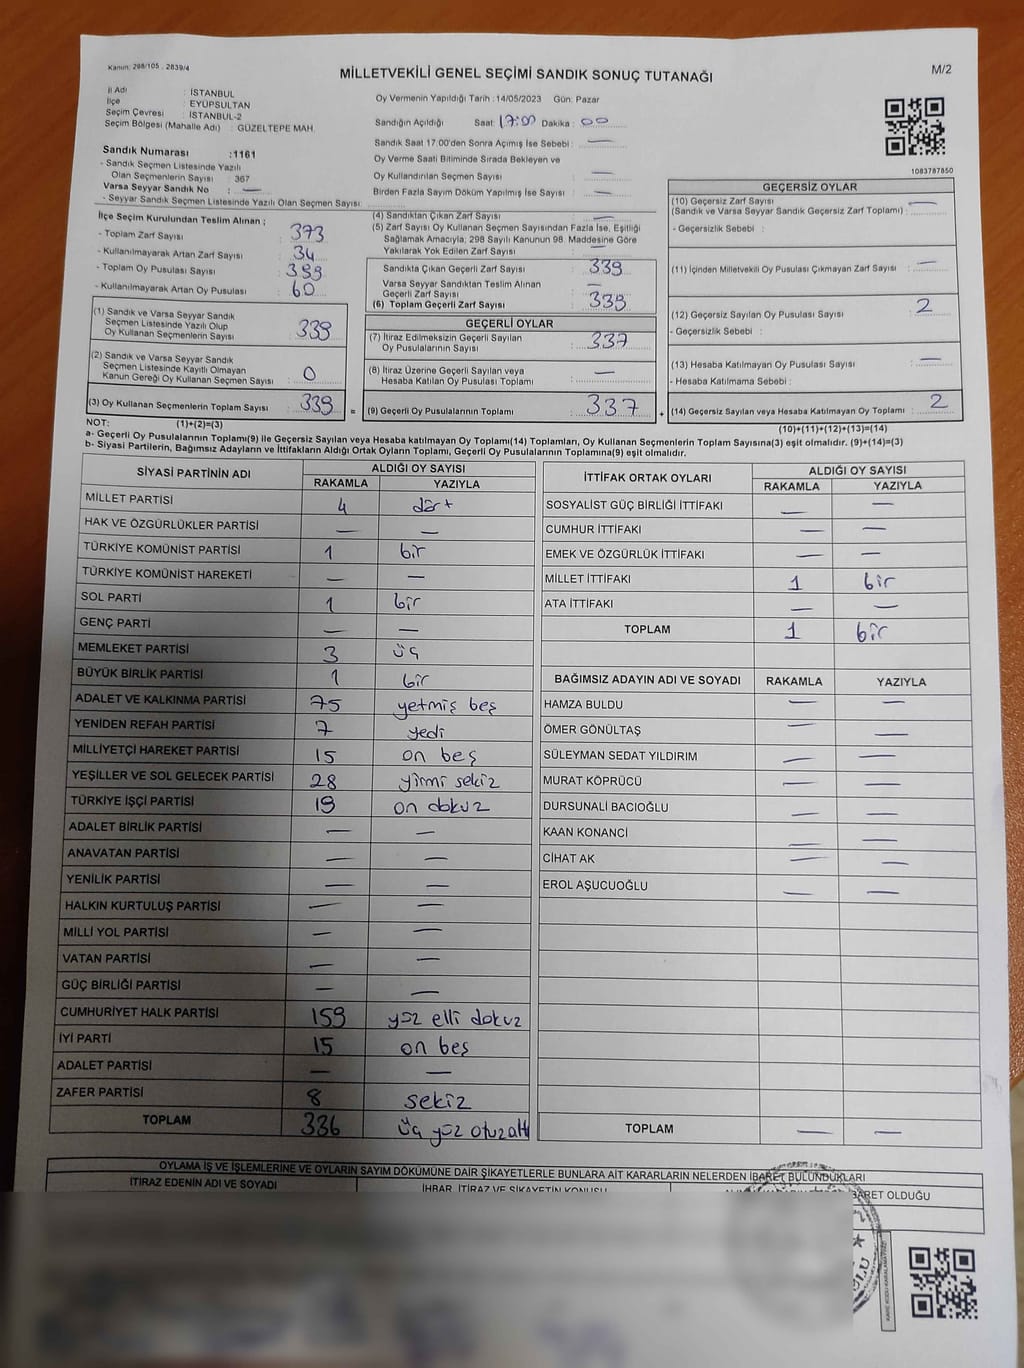 Kanun: 298/105 - 2839/4
MİLLETVEKİLİ GENEL SEÇİMİ SANDIK SONUÇ TUTANAĞI
M/2
İl Adı : İSTANBUL
İlçe : EYÜPSULTAN
Seçim Çevresi : İSTANBUL-2
Seçim Bölgesi (Mahalle Adı) : GÜZELTEPE MAH.
Sandık Numarası :1161
- Sandık Seçmen Listesinde Yazılı
Olan Seçmenlerin Sayısı : 367
Varsa Seyyar Sandık No : —
- Seyyar Sandık Seçmen Listesinde Yazılı Olan Seçmen Sayısı :
Oy Vermenin Yapıldığı Tarih : 14/05/2023 Gün: Pazar
Sandığın Açıldığı Saat: 17:00 Dakika : 00
Sandık Saat 17.00'den Sonra Açımış İse Sebebi : —
Oy Verme Saati Bitiminde Sırada Bekleyen ve
Oy Kullandırılan Seçmen Sayısı : —
Birden Fazla Sayım Döküm Yapılmış İse Sayısı : —
1083787850
İlçe Seçim Kurulundan Teslim Alınan ;
- Toplam Zarf Sayısı : 373
- Kullanılmayarak Artan Zarf Sayısı : 34
- Toplam Oy Pusulası Sayısı : 399
- Kullanılmayarak Artan Oy Pusulası : 60
(1) Sandık ve Varsa Seyyar Sandık
Seçmen Listesinde Yazılı Olup
Oy Kullanan Seçmenlerin Sayısı : 339
(2) Sandık ve Varsa Seyyar Sandık
Seçmen Listesinde Kayıtlı Olmayan
Kanun Gereği Oy Kullanan Seçmen Sayısı : 0
(3) Oy Kullanan Seçmenlerin Toplam Sayısı : 339 =
(4) Sandıktan Çıkan Zarf Sayısı : —
(5) Zarf Sayısı Oy Kullanan Seçmen Sayısından Fazla İse, Eşitliği
Sağlamak Amacıyla; 298 Sayılı Kanunun 98. Maddesine Göre
Yakılarak Yok Edilen Zarf Sayısı : —
Sandıkta Çıkan Geçerli Zarf Sayısı : 339
Varsa Seyyar Sandıktan Teslim Alınan
Geçerli Zarf Sayısı : —
(6) Toplam Geçerli Zarf Sayısı : 339
GEÇERLİ OYLAR
(7) İtiraz Edilmeksizin Geçerli Sayılan
Oy Pusulalarının Sayısı : 337
(8) İtiraz Üzerine Geçerli Sayılan veya
Hesaba Katılan Oy Pusulası Toplamı : —
(9) Geçerli Oy Pusulalarının Toplamı : 337 +
GEÇERSİZ OYLAR
(10) Geçersiz Zarf Sayısı
(Sandık ve Varsa Seyyar Sandık Geçersiz Zarf Toplamı) : —
- Geçersizlik Sebebi :
(11) İçinden Milletvekili Oy Pusulası Çıkmayan Zarf Sayısı : —
(12) Geçersiz Sayılan Oy Pusulası Sayısı : 2
- Geçersizlik Sebebi :
(13) Hesaba Katılmayan Oy Pusulası Sayısı : —
- Hesaba Katılmama Sebebi :
(14) Geçersiz Sayılan veya Hesaba Katılmayan Oy Toplamı : 2
NOT: (1)+(2)=(3)
(10)+(11)+(12)+(13)=(14)
a- Geçerli Oy Pusulalarının Toplamı(9) ile Geçersiz Sayılan veya Hesaba katılmayan Oy Toplamı(14) Toplamları, Oy Kullanan Seçmenlerin Toplam Sayısına(3) eşit olmalıdır. (9)+(14)=(3)
b- Siyasi Partilerin, Bağımsız Adayların ve İttifakların Aldığı Ortak Oyların Toplamı, Geçerli Oy Pusulalarının Toplamına(9) eşit olmalıdır.
SİYASİ PARTİNİN ADI ALDIĞI OY SAYISI
RAKAMLA YAZIYLA
MİLLET PARTİSİ 4 dört
HAK VE ÖZGÜRLÜKLER PARTİSİ — —
TÜRKİYE KOMÜNİST PARTİSİ 1 bir
TÜRKİYE KOMÜNİST HAREKETİ — —
SOL PARTİ 1 bir
GENÇ PARTİ — —
MEMLEKET PARTİSİ 3 üç
BÜYÜK BİRLİK PARTİSİ 1 bir
ADALET VE KALKINMA PARTİSİ 75 yetmiş beş
YENİDEN REFAH PARTİSİ 7 yedi
MİLLİYETÇİ HAREKET PARTİSİ 15 on beş
YEŞİLLER VE SOL GELECEK PARTİSİ 28 yirmi sekiz
TÜRKİYE İŞÇİ PARTİSİ 19 on dokuz
ADALET BİRLİK PARTİSİ — —
ANAVATAN PARTİSİ — —
YENİLİK PARTİSİ — —
HALKIN KURTULUŞ PARTİSİ — —
MİLLİ YOL PARTİSİ — —
VATAN PARTİSİ — —
GÜÇ BİRLİĞİ PARTİSİ — —
CUMHURİYET HALK PARTİSİ 159 yüz elli dokuz
İYİ PARTİ 15 on beş
ADALET PARTİSİ — —
ZAFER PARTİSİ 8 sekiz
TOPLAM 336 üç yüz otuz altı
İTTİFAK ORTAK OYLARI ALDIĞI OY SAYISI
RAKAMLA YAZIYLA
SOSYALİST GÜÇ BİRLİĞİ İTTİFAKI — —
CUMHUR İTTİFAKI — —
EMEK VE ÖZGÜRLÜK İTTİFAKI — —
MİLLET İTTİFAKI 1 bir
ATA İTTİFAKI — —
TOPLAM 1 bir
BAĞIMSIZ ADAYIN ADI VE SOYADI RAKAMLA YAZIYLA
HAMZA BULDU — —
ÖMER GÖNÜLTAŞ — —
SÜLEYMAN SEDAT YILDIRIM — —
MURAT KÖPRÜCÜ — —
DURSUNALİ BACIOĞLU — —
KAAN KONANCİ — —
CİHAT AK — —
EROL AŞUCUOĞLU — —
TOPLAM — —
OYLAMA İŞ VE İŞLEMLERİNE VE OYLARIN SAYIM DÖKÜMÜNE DAİR ŞİKAYETLERLE BUNLARA AİT KARARLARIN NELERDEN İBARET BULUNDUKLARI
İTİRAZ EDENİN ADI VE SOYADI İHBAR, İTİRAZ VE ŞİKAYETİN KONUSU İBARET OLDUĞU